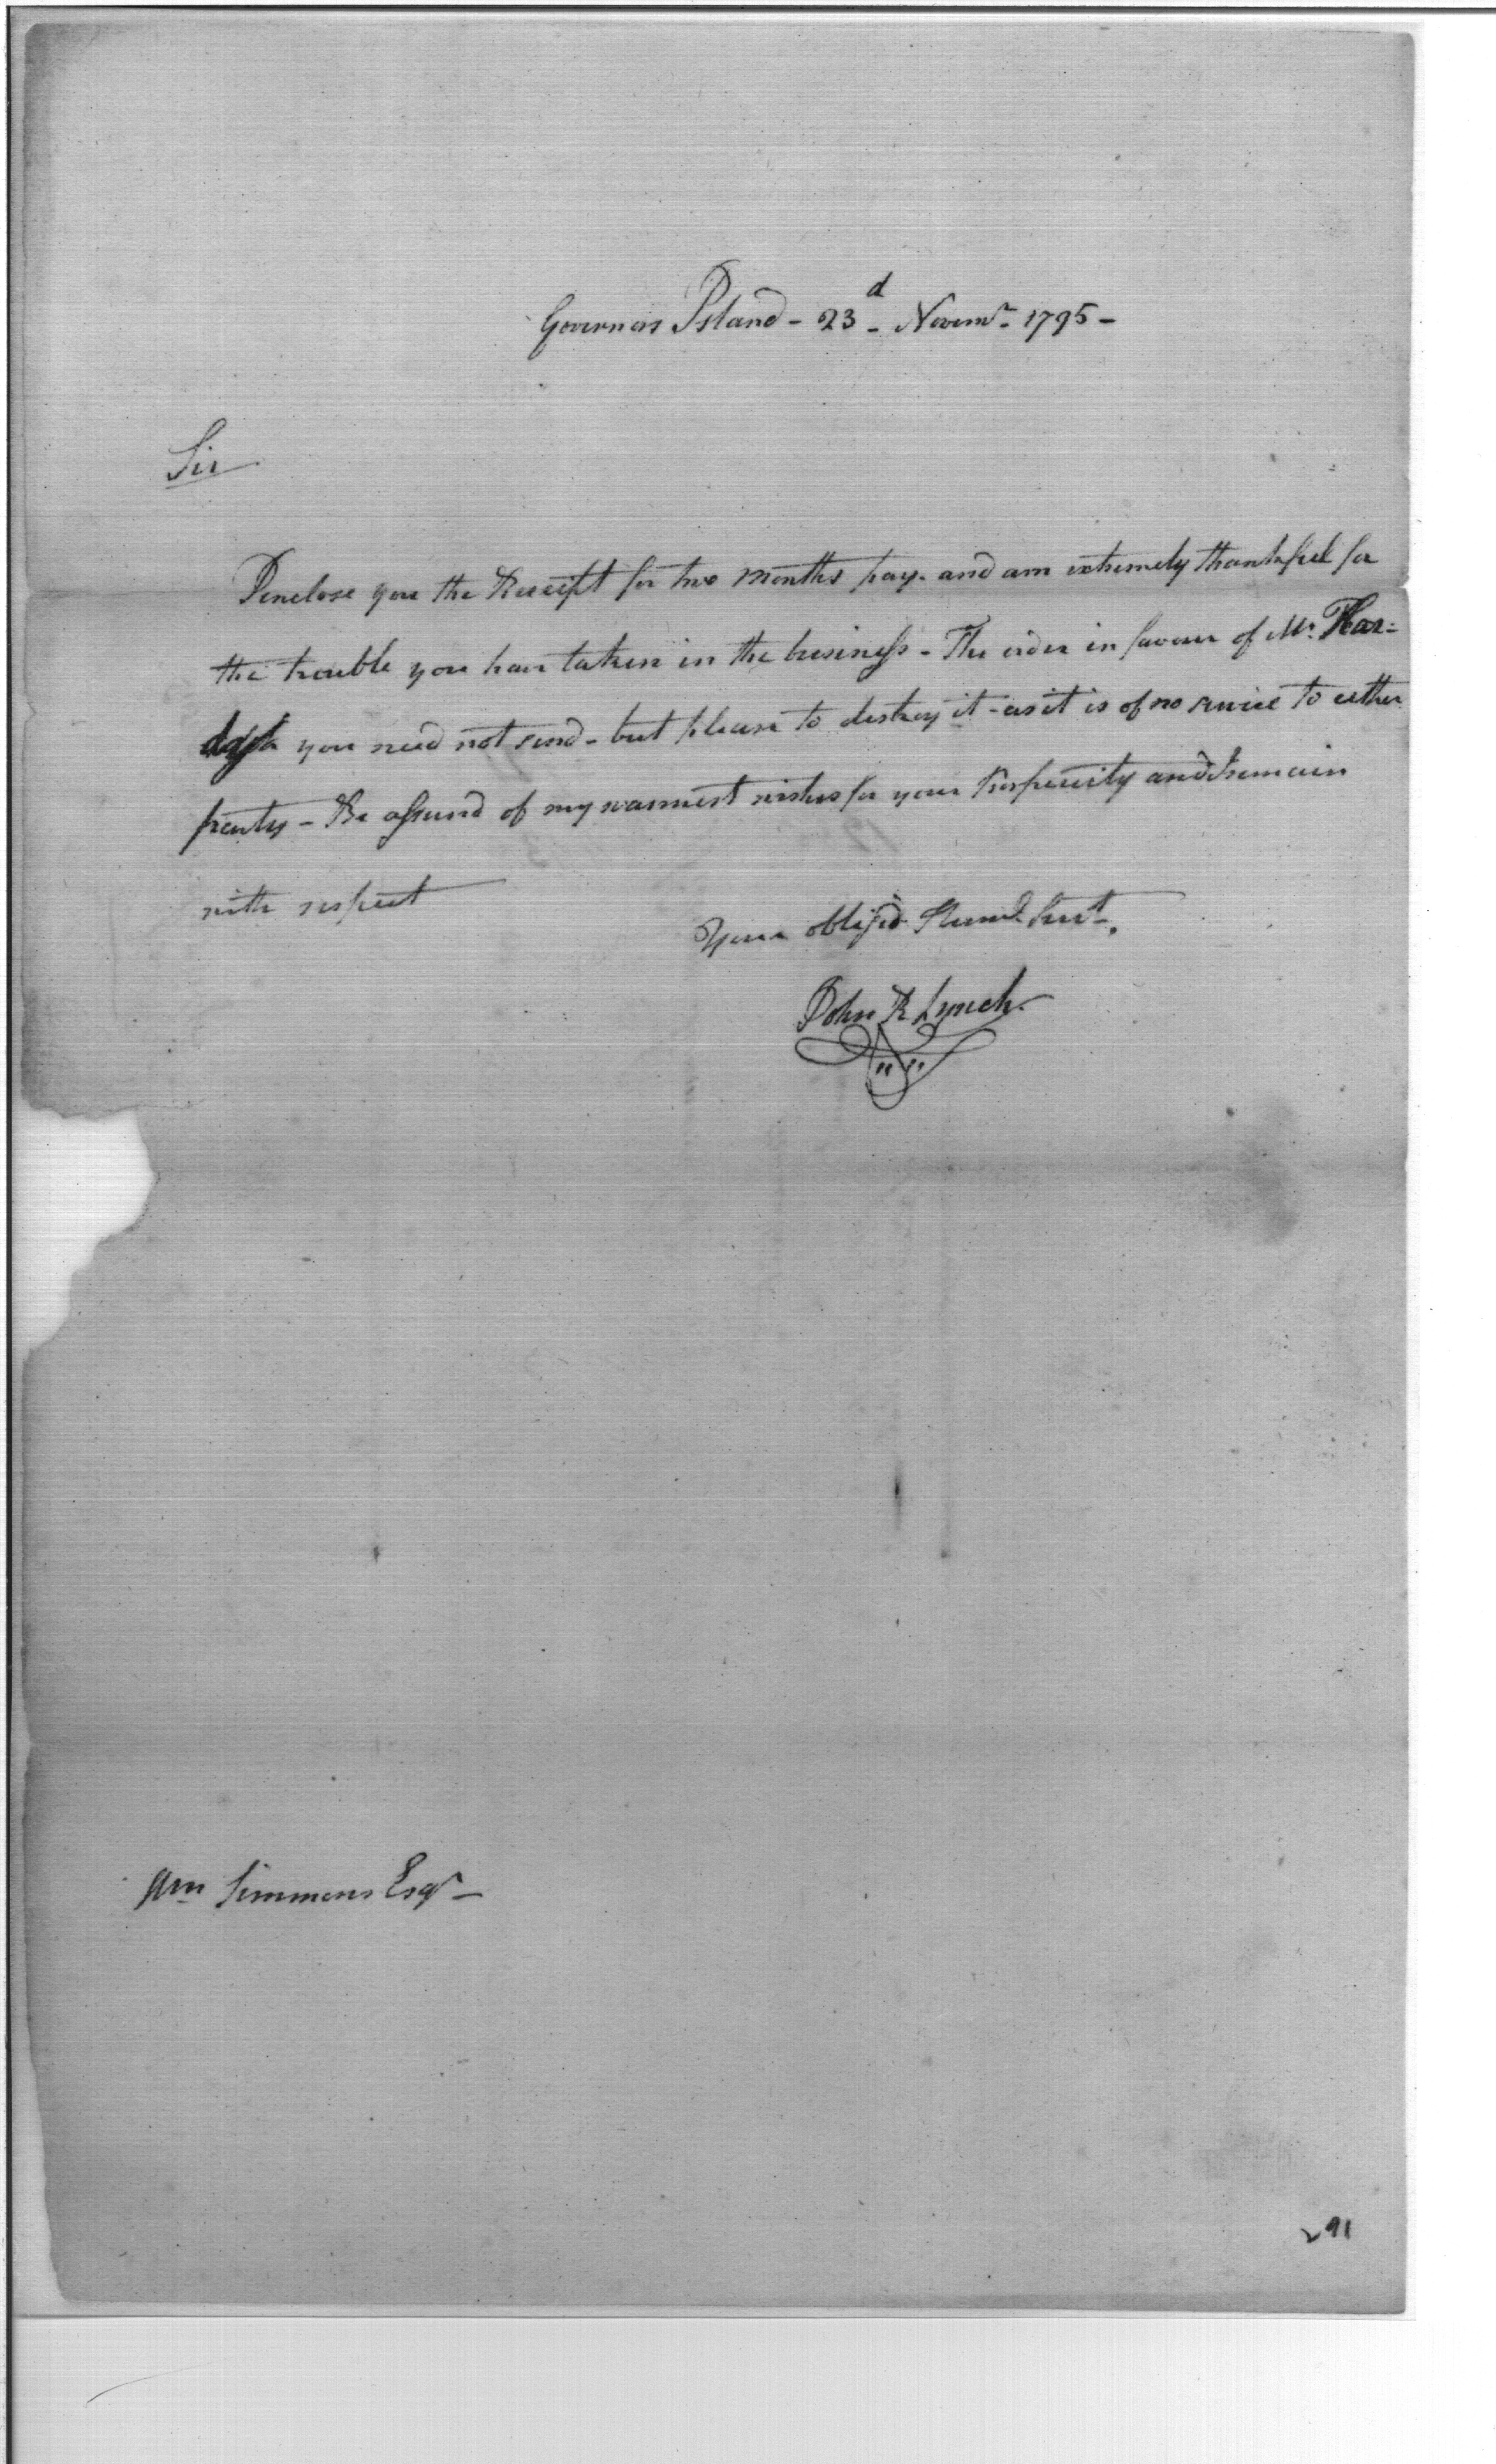 Governors Island - 23d Novemr. 1795 -
Sir
I enclose you the Receipt for two Months pay. and am extremely thankfull for
the trouble you have taken in the business - The order in favour of Mr. Har=
you need not send - but please to destroy it - as it is of no service to either
party - Be assured of my warmest wishes for your Prosperity and I remain
with respect
Your oblig'd Humb. Servt.
John R Lynch.
Wm Simmons Esqr -
291